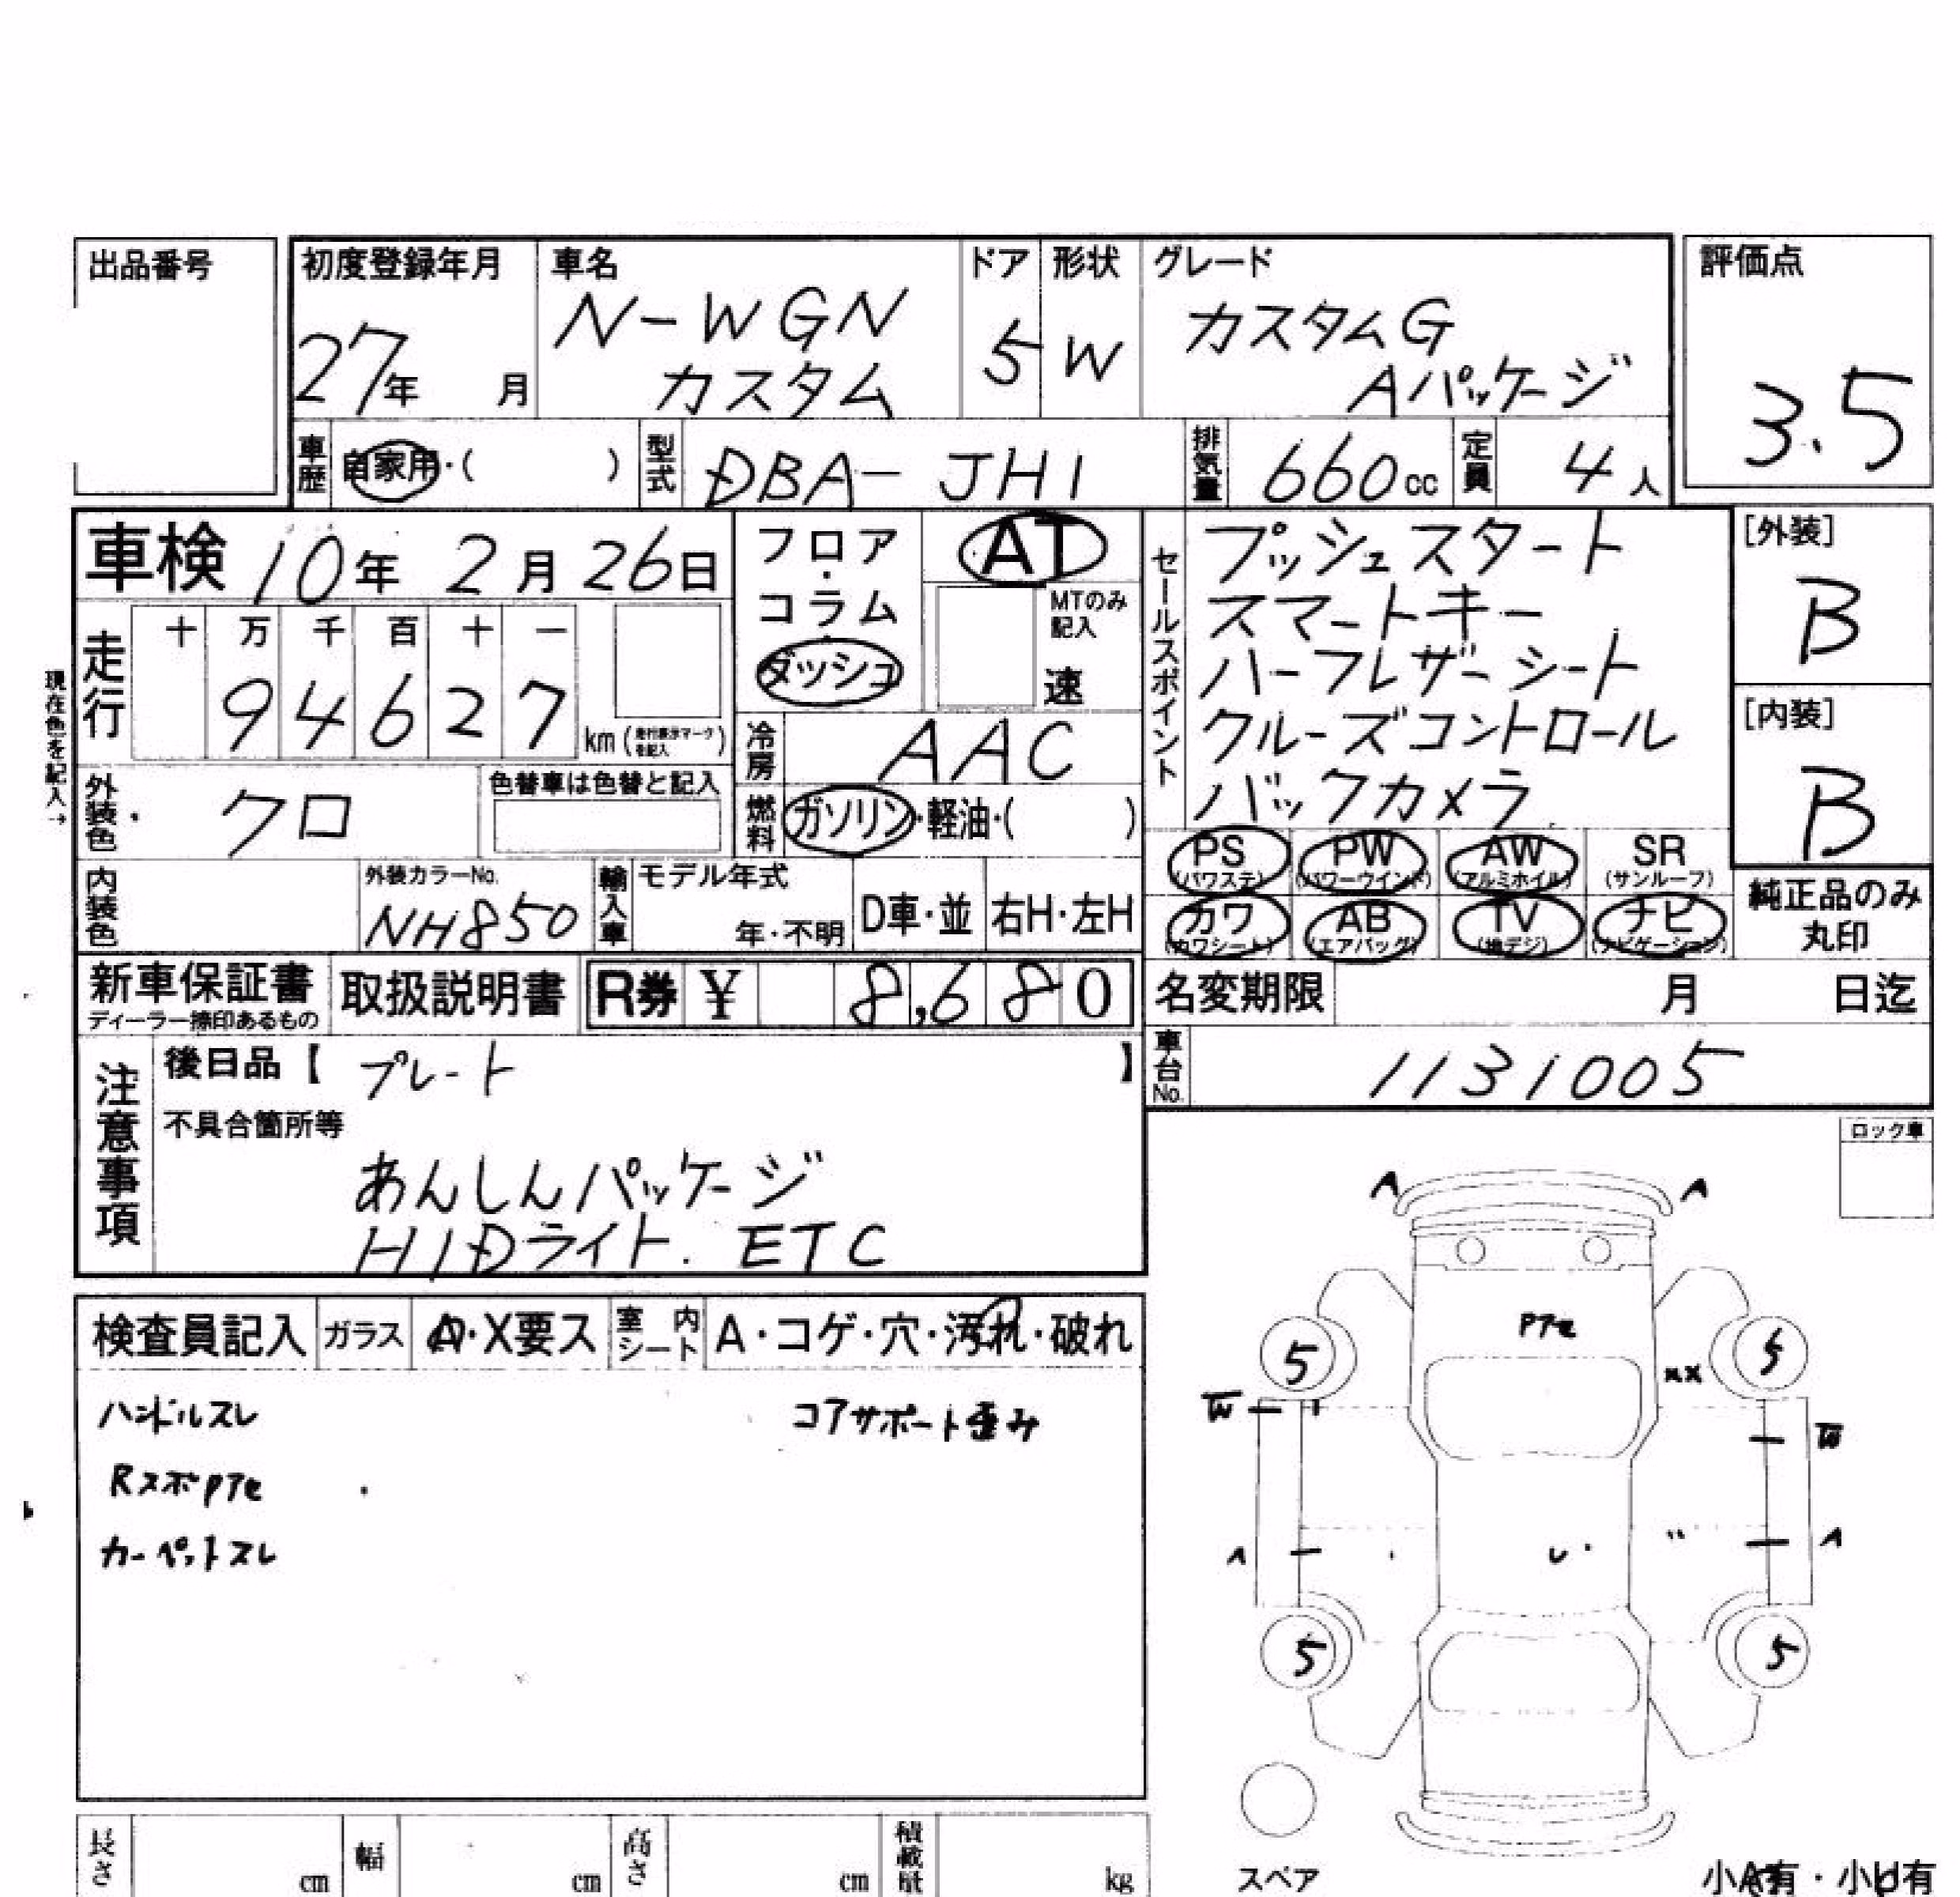 出品番号
初度登録年月 車名 ドア 形状 グレード 評価点
27年 月 N-WGN カスタム 5 W カスタムG Aパッケージ 3.5
車歴 自家用・( ) 型式 DBA-JH1 排気量 660cc 定員 4人
車検 10年 2月 26日
フロア・コラム ダッシュ
AT
MTのみ記入
速
セールスポイント
プッシュスタート
スマートキー
ハーフレザーシート
クルーズコントロール
バックカメラ
[外装]
B
[内装]
B
現在色を記入→
走行 十 万 千 百 十 一
9 4 6 2 7 km (走行表示マークを記入)
冷房 AAC
外装色 クロ 色替車は色替と記入
燃料 ガソリン・軽油・( )
PS PW AW SR
(パワステ) (パワーウインド) (アルミホイル) (サンルーフ)
カワ AB TV ナビ
(カワシート) (エアバッグ) (地デジ) (ナビゲーション)
純正品のみ
丸印
内装色 外装カラーNo. NH850 輸入車 モデル年式 年・不明 D車・並 右H・左H
新車保証書 取扱説明書 R券 ¥ 8,680
ディーラー捺印あるもの
名変期限 月 日迄
車台No. 1131005
注意事項
後日品【 プレート 】
不具合箇所等
あんしんパッケージ
HIDライト. ETC
ロック車
検査員記入 ガラス A・X要ス 室内シート A・コゲ・穴・汚れ・破れ
ハンドルスレ コアサポート歪み
Rスポ
カーペットスレ
A A
5 5
XX
W W
A A
5 5
スペア
長さ cm 幅 cm 高さ cm 積載量 kg
小A有・小U有